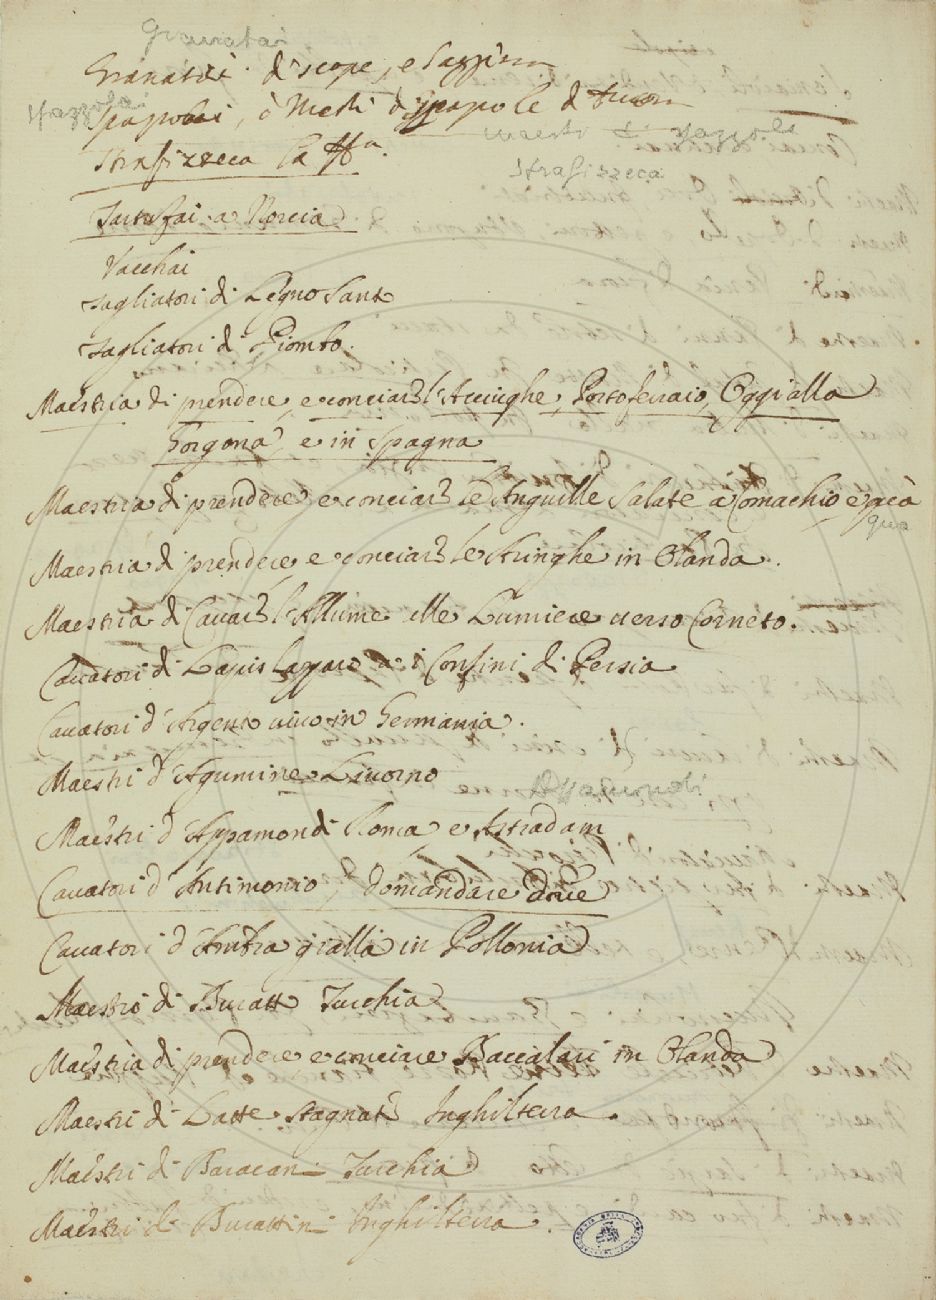 Granatai
Granatai di scope, e Saggina
Spazzolai
Spazzolai, ò Mestri di Spazzole di
maestri di spazzole
Strafizzeca
Tartufai a Norcia
Vacchai
Tagliatori di Legno Santo
Tagliatori di Piombo.
Maestria di prendere, e conciare l'Acciughe, Portoferraio, Oggi alla
Gorgona, e in Spagna
Maestria di prendere, e conciare le Anguille Salate a Comachio e qcà
qua
Maestria di prendere e conciare le Aringhe in Olanda.
Maestria di Cavare l'Allume alle Lumiere verso Corneto.
Cavatori di Lapis lazzaro a i Confini di Persia
Cavatori d'Argento vivo in Germania.
Maestri d'Agumine Livorno
Maestri d'Appamondi Roma, e Astradam
Cavatori d'Antimonio, domandare dove
Cavatori d'Ambra gialla in Pollonia
Maestri di Buratti Turchia
Maestria di prendere, e conciare Baccalari in Olanda
Maestri di Latte stagnate Inghilterra.
Maestri di Baracani Turchia
Maestri di Burattini Inghilterra.